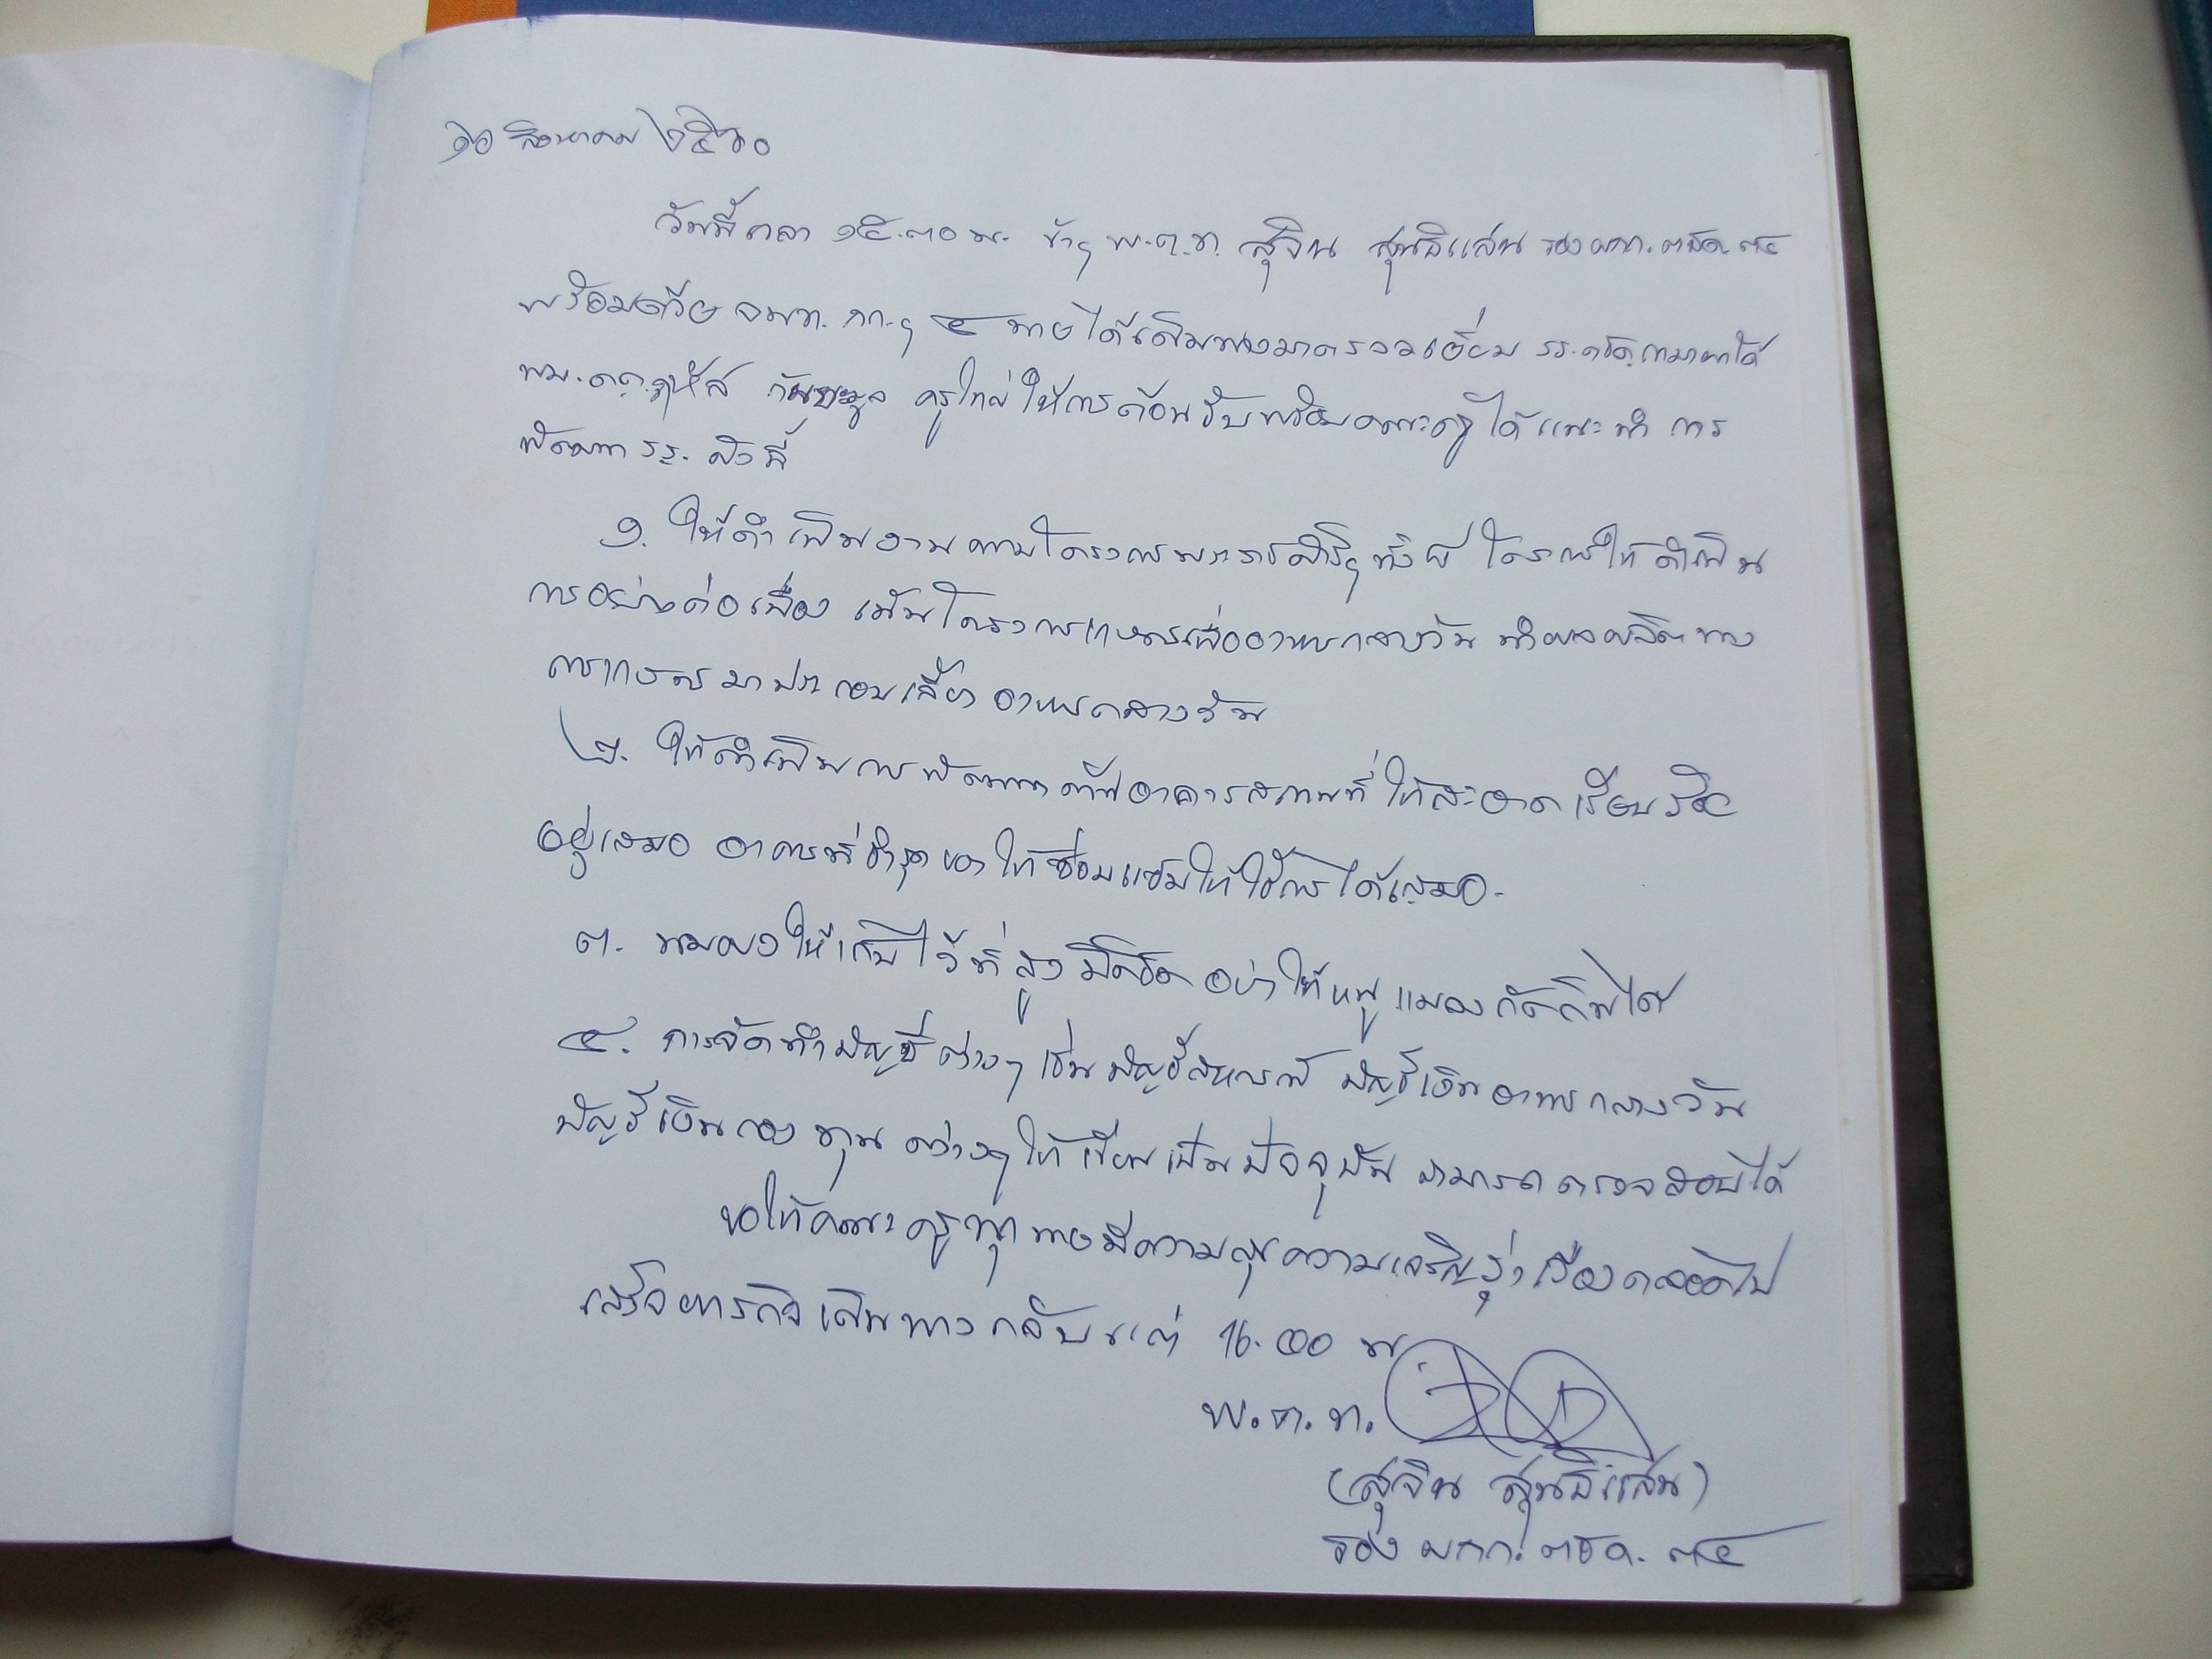 ๑๐ สิงหาคม ๒๕๖๐
วันนี้เวลา ๑๕.๓๐ น. ข้าฯ พ.ต.ท. สุจิน สุนธิแสน รอง ผกก. ตชด. ๓๔
พร้อมด้วย จนท. ๔ นาย ได้เดินทางมาตรวจเยี่ยม รร.ตชด.
ครูใหญ่ ให้การต้อนรับพร้อมคณะครู ได้แนะนำ การ
พัฒนา รร. ดังนี้
๑. ให้ดำเนินงานตามโครงการพระราชดำริฯ ทั้ง ๘ โครงการให้ดำเนิน
การอย่างต่อเนื่อง เน้นโครงการเกษตรเพื่ออาหารกลางวัน นำผลผลิตทาง
การเกษตรมาประกอบเลี้ยงอาหารกลางวัน
๒. ให้ดำเนินการพัฒนาด้านอาคารสถานที่ ให้สะอาด เรียบร้อย
อยู่เสมอ อาคารที่ชำรุด ให้ซ่อมแซมให้ใช้การได้เสมอ
๓. นมผงให้เก็บไว้ที่สูง มิดชิด อย่าให้หนู แมลง กัดกินได้
๔. การจัดทำบัญชีต่างๆ เช่น บัญชีสหกรณ์ บัญชีเงินอาหารกลางวัน
บัญชีเงินกองทุน ต่างๆ ให้เขียนเป็นปัจจุบัน สามารถตรวจสอบได้
ขอให้คณะครูทุกนายมีความสุขความเจริญรุ่งเรืองตลอดไป
เสร็จภารกิจเดินทางกลับแต่ 16.00 น.
พ.ต.ท.
(สุจิน สุนธิแสน)
รอง ผกก. ตชด. ๓๔